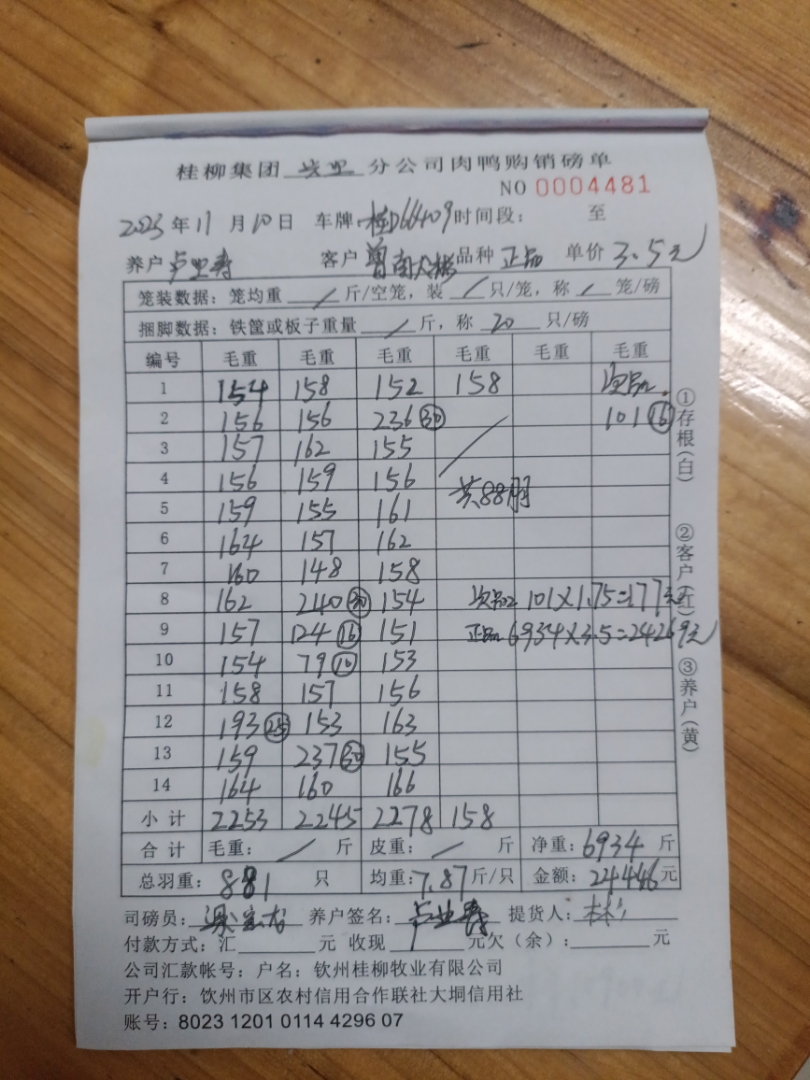 桂柳集团 分公司肉鸭购销磅单
NO 0004481
2023年11月10日 车牌 桂D66409 时间段： 至
养户 卢业寿 客户 曾南大桥 品种 正品 单价 3.5元
笼装数据：笼均重 / 斤/空笼，装 / 只/笼，称 / 笼/磅
捆脚数据：铁筐或板子重量 / 斤，称 20 只/磅
编号 毛重 毛重 毛重 毛重 毛重 毛重
1 154 158 152 158 次品
2 156 156 236(30) 101(16)
3 157 162 155
4 156 159 156
共88羽
5 159 155 161
6 164 157 162
7 160 148 158
8 162 240(30) 154 次品 101X1.75=177元
9 157 124(16) 151 正品 6934X3.5=24269元
10 154 79(10) 153
11 158 157 156
12 193(25) 153 163
13 159 237(30) 155
14 164 160 166
小计 2253 2245 2278 158
合计 毛重： / 斤 皮重： / 斤 净重：6934 斤
总羽重：881 只 均重：7.87斤/只 金额：24446元
司磅员： 养户签名：卢业寿 提货人：
付款方式：汇 元 收现 元欠（余）： 元
公司汇款帐号：户名：钦州桂柳牧业有限公司
开户行：饮州市区农村信用合作联社大垌信用社
账号：8023 1201 0114 4296 07
①存根(白) ②客户(红) ③养户(黄)